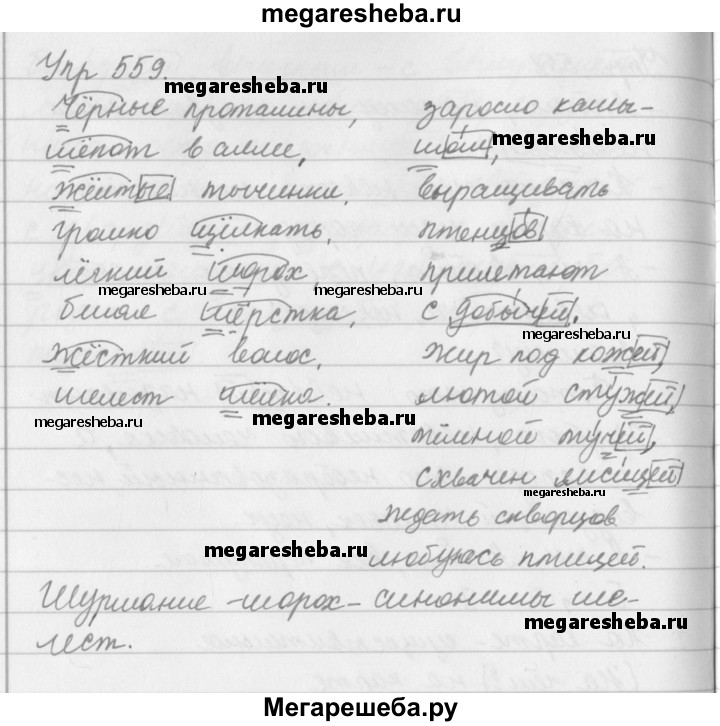 megaresheba.ru
Упр 559.
megaresheba.ru
Чёрные проталины,
шёпот в аллее,
жёлтые тычинки,
громко щёлкать,
лёгкий шорох,
megaresheba.ru
белая шёрстка,
жёсткий волос,
шелест шёлка.
megaresheba.ru
заросло камы-
шом,
megaresheba.ru
выращивать
птенцов
прилетают
megaresheba.ru
с добычей,
megaresheba.ru
жир под кожей,
megaresheba.ru
лютой стужей,
тёмной тучей,
схвачен лисицей
megaresheba.ru
ждать скворцов
megaresheba.ru
любуясь птицей.
Шуршание - шорох - синонимы ше-
megaresheba.ru
лест.
Мегарешеба.ру